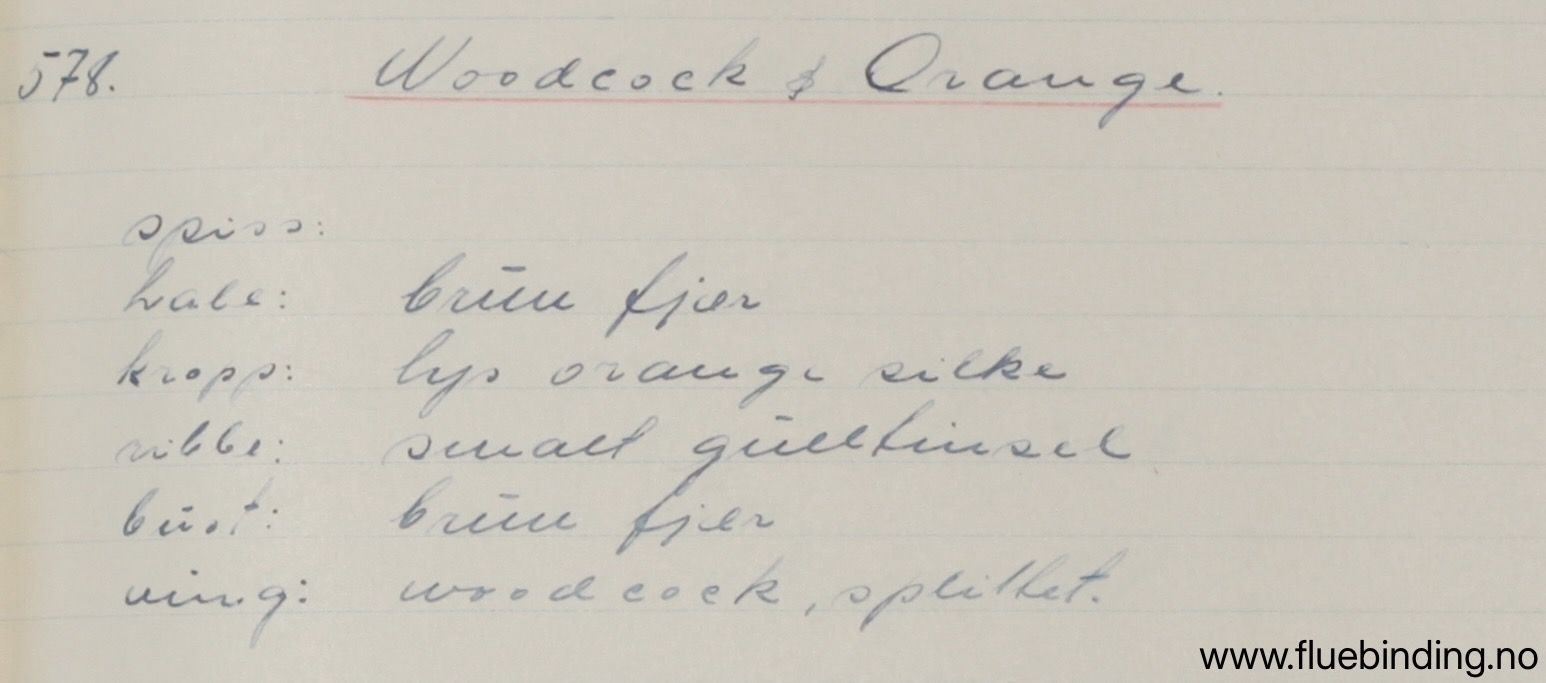 578. Woodcock & Orange.
spiss:
hale: brun fjær
kropp: lys orange silke
ribbe: smalt gulltinsel
bust: brun fjær
ving: woodcock, splittet.
www.fluebinding.no